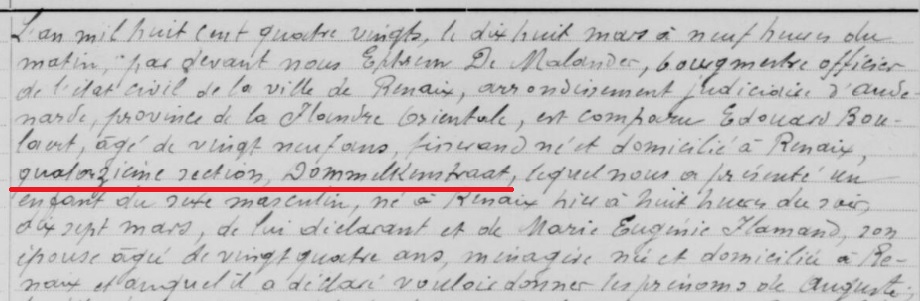 L'an mil huit cent quatre vingts, le dix huit mars à neuf heures du
matin, par devant nous Ephrem De Malander, bourgmestre officier
de l'état civil de la ville de Renaix, arrondissement judiciaire d'Aude-
narde, province de la Flandre Orientale, est comparu Edouard Bou-
laert, âgé de vingt neuf ans, tisserand né et domicilié à Renaix,
quatorzième section, Dommelkenstraat, lequel nous a présenté un
enfant du sexe masculin, né à Renaix hier à huit heures du soir,
dix sept mars, de lui déclarant et de Marie Eugénie Flamand, son
épouse âgée de vingt quatre ans, ménagère née et domiciliée à Re-
naix et auquel il a déclaré vouloir donner les prénoms de Auguste